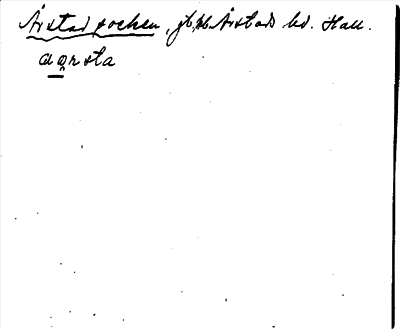 Årstad socken, jb, kb Årstads hd. Hall.
aɑrsta